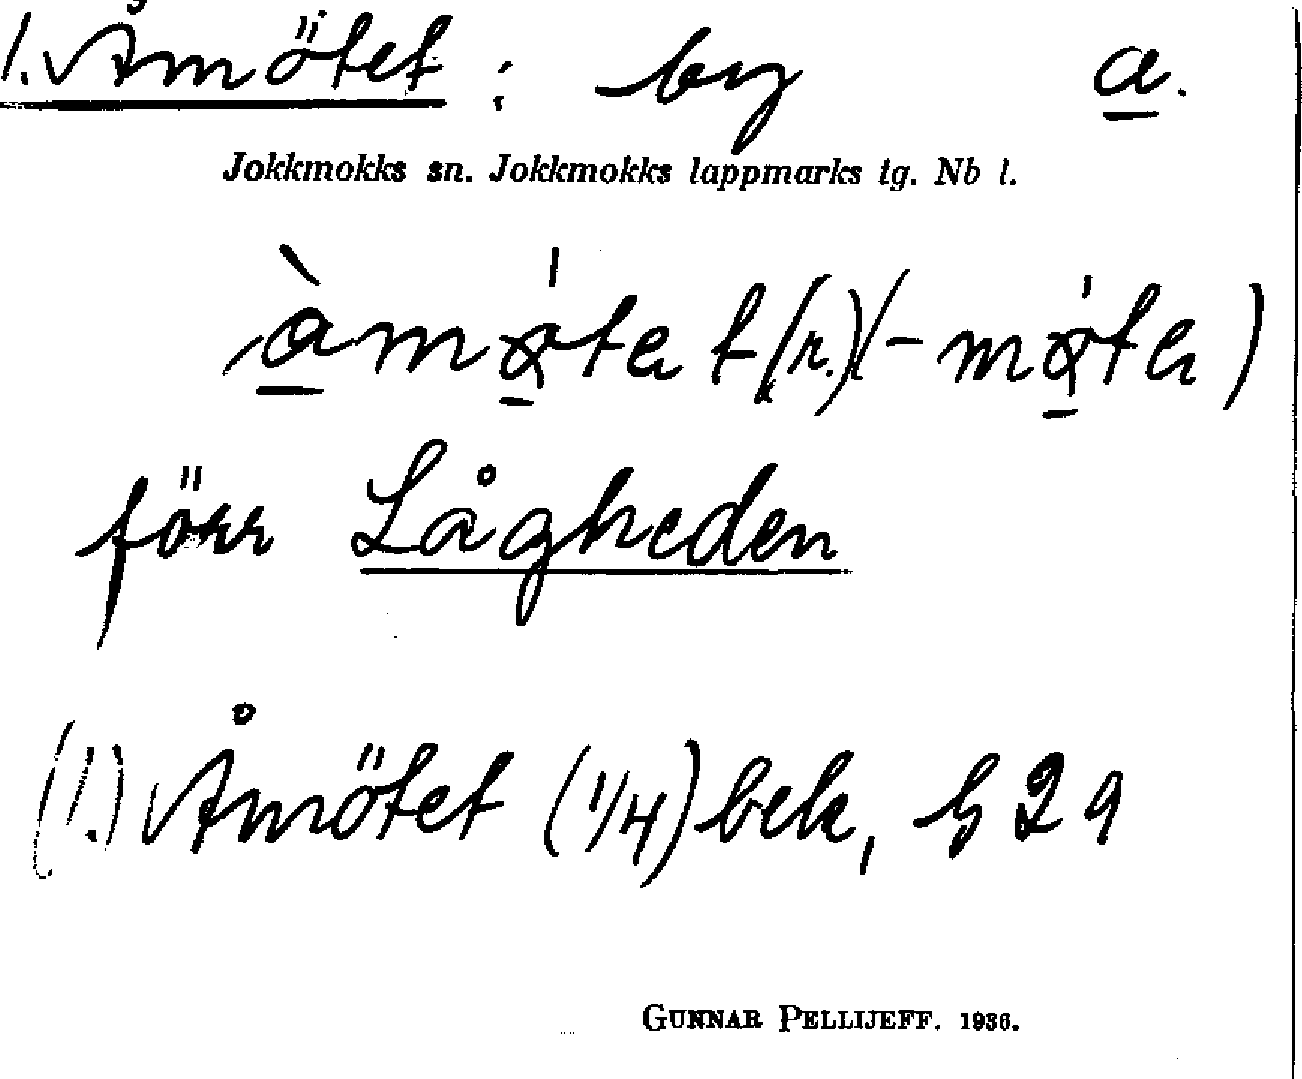 1. Åmötet : by a.
Jokkmokks sn. Jokkmokks lappmarks tg. Nb l.
förr Lågheden
(1.) Åmötet (1/4) bek, h 29
GUNNAR PELLIJEFF. 1936.